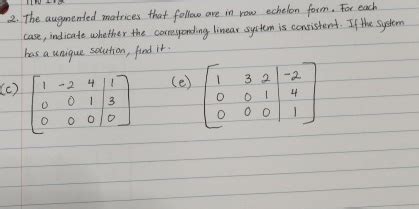 2. The augmented matrices that follow are in row echelon form. For each
case, indicate whether the corresponding linear system is consistent. If the system
has a unique solution, find it.
(c) [ 1 -2 4 | 1 ] (e) [ 1 3 2 | -2 ]
0 0 1 | 3 0 0 1 | 4
0 0 0 | 0 0 0 0 | 1